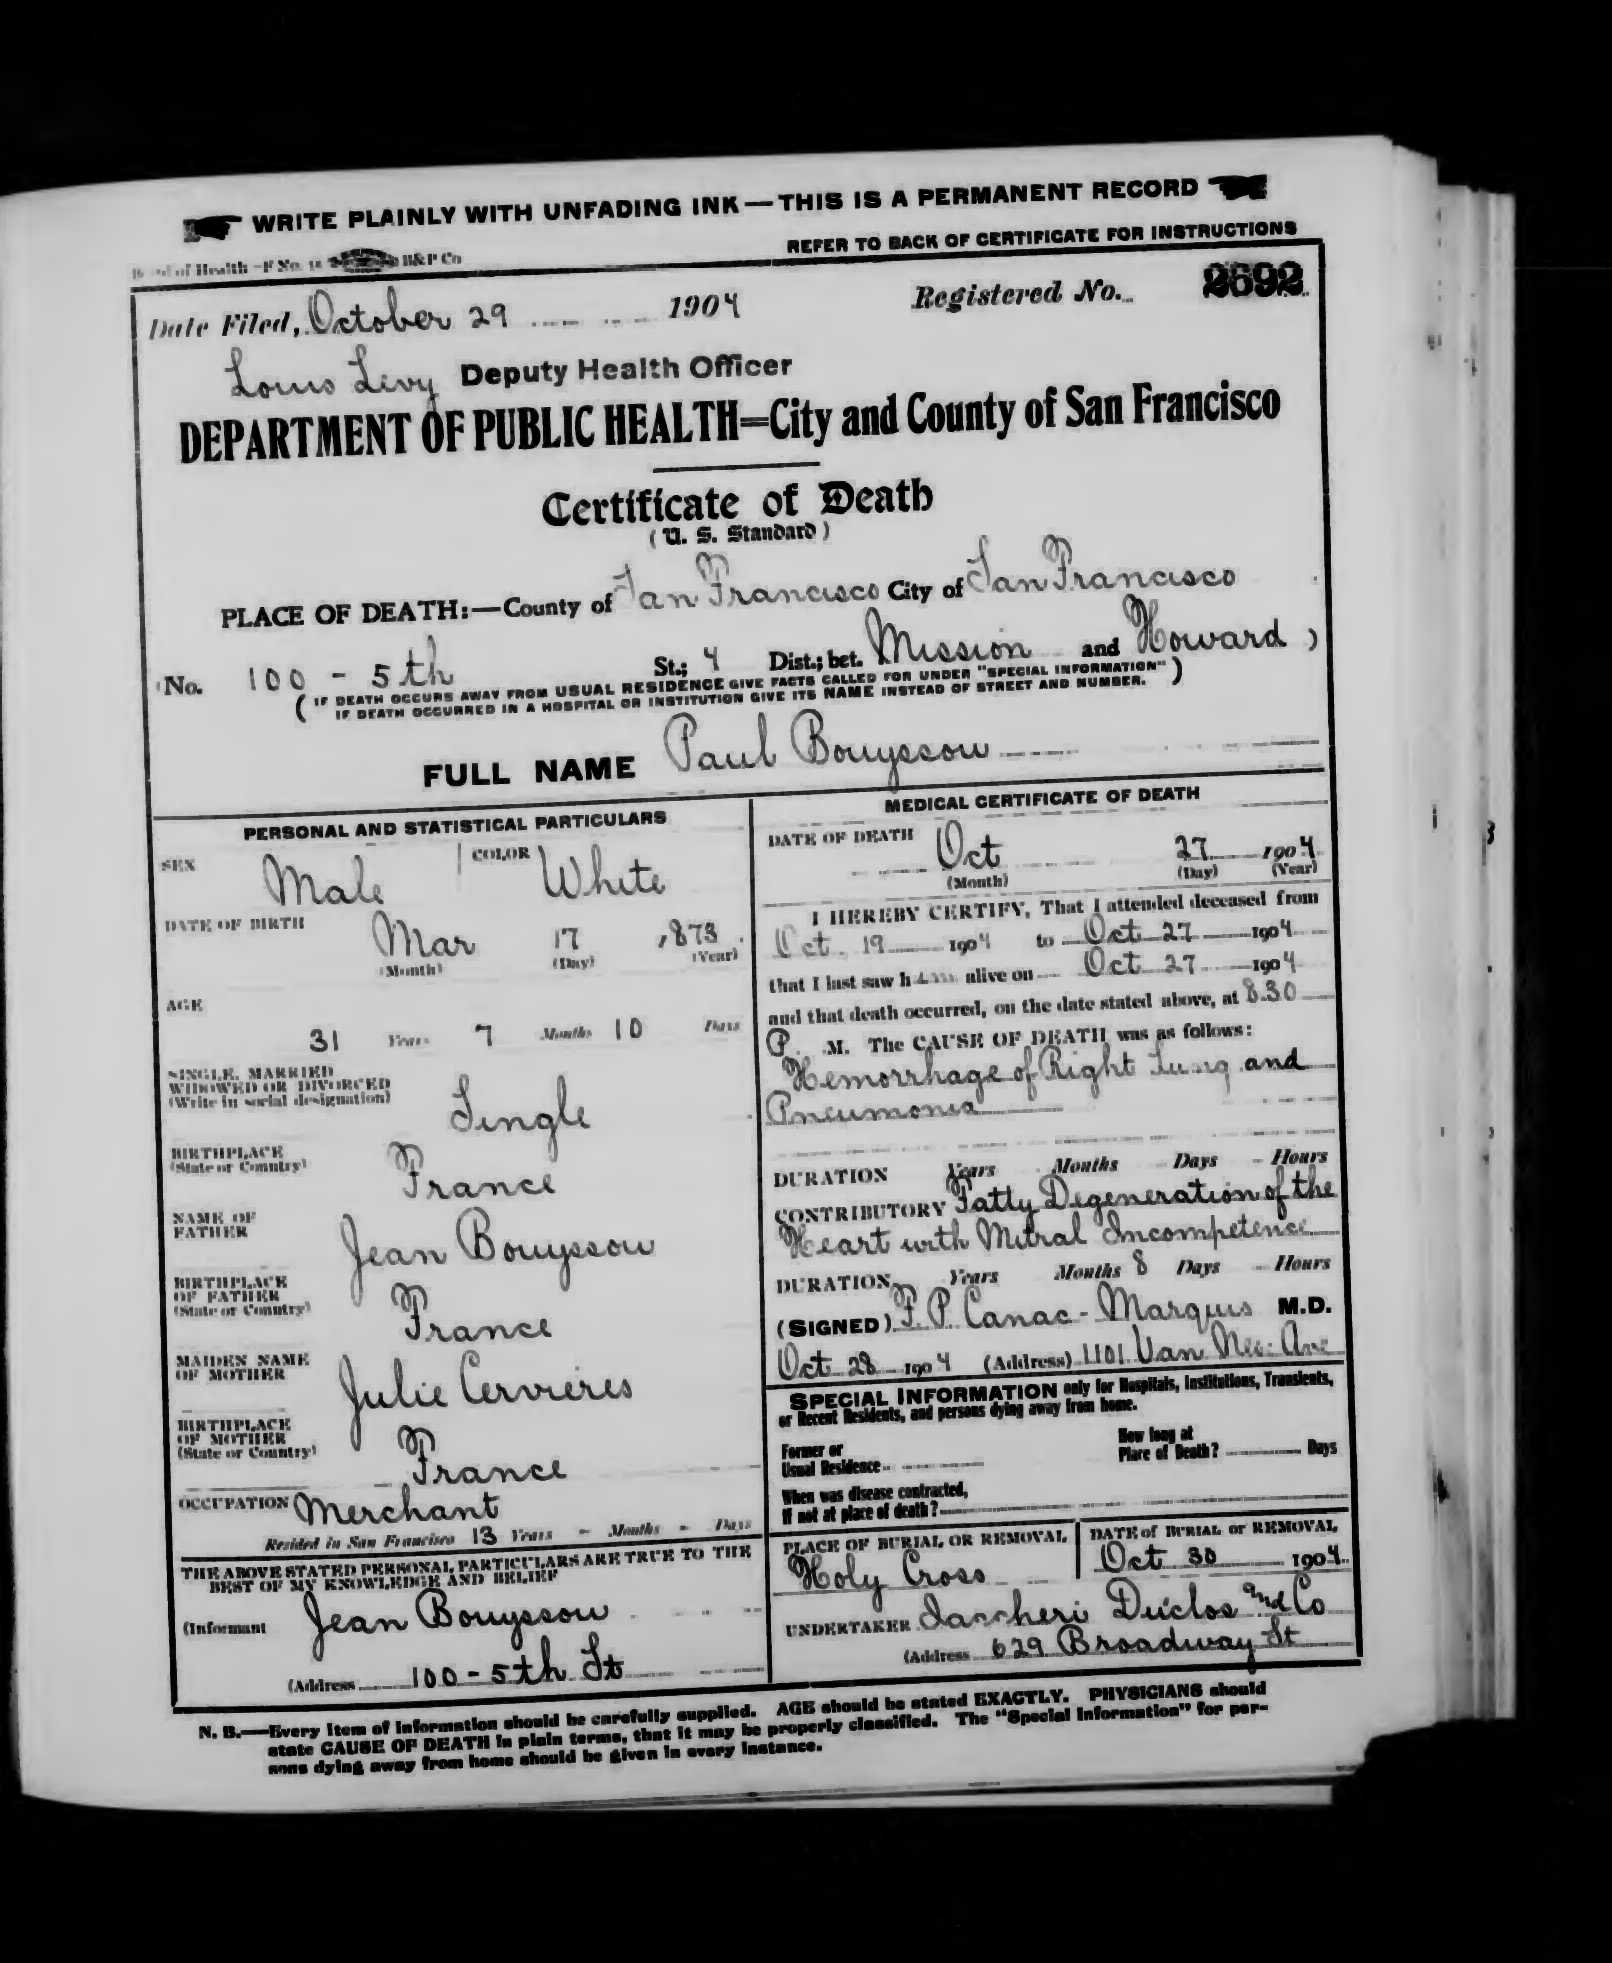 WRITE PLAINLY WITH UNFADING INK — THIS IS A PERMANENT RECORD
REFER TO BACK OF CERTIFICATE FOR INSTRUCTIONS
of Health—F No. B&P Co
Date Filed, October 29 1904 Registered No. 2692
Louis Levy Deputy Health Officer
DEPARTMENT OF PUBLIC HEALTH=City and County of San Francisco
Certificate of Death
(U. S. Standard)
PLACE OF DEATH:—County of San Francisco City of San Francisco
(No. 100 - 5th St.; 4 Dist.; bet. Mission and Howard )
( IF DEATH OCCURS AWAY FROM USUAL RESIDENCE GIVE FACTS CALLED FOR UNDER "SPECIAL INFORMATION" )
IF DEATH OCCURRED IN A HOSPITAL OR INSTITUTION GIVE ITS NAME INSTEAD OF STREET AND NUMBER.
FULL NAME Paul Bouyssou
PERSONAL AND STATISTICAL PARTICULARS
SEX Male COLOR White
DATE OF BIRTH Mar 17 1873
(Month) (Day) (Year)
AGE
31 Years 7 Months 10 Days
SINGLE, MARRIED
WIDOWED OR DIVORCED
(Write in social designation) Single
BIRTHPLACE
(State or Country) France
NAME OF
FATHER Jean Bouyssou
BIRTHPLACE
OF FATHER
(State or Country) France
MAIDEN NAME
OF MOTHER Julie Cervieres
BIRTHPLACE
OF MOTHER
(State or Country) France
OCCUPATION Merchant
Resided in San Francisco 13 Years - Months - Days
THE ABOVE STATED PERSONAL PARTICULARS ARE TRUE TO THE
BEST OF MY KNOWLEDGE AND BELIEF
(Informant Jean Bouyssou
(Address 100 - 5th St
MEDICAL CERTIFICATE OF DEATH
DATE OF DEATH Oct 27 1904
(Month) (Day) (Year)
I HEREBY CERTIFY, That I attended deceased from
Oct 19 1904 to Oct 27 1904
that I last saw him alive on Oct 27 1904
and that death occurred, on the date stated above, at 8.30
P. M. The CAUSE OF DEATH was as follows:
Hemorrhage of Right Lung and
Pneumonia
DURATION Years Months Days Hours
CONTRIBUTORY Fatty Degeneration of the
Heart with Mitral Incompetence
DURATION Years Months 8 Days Hours
(SIGNED) F. P. Canac-Marquis M.D.
Oct 28 1904 (Address) 1101 Van Nes: Ave
SPECIAL INFORMATION only for Hospitals, Institutions, Transients,
or Recent Residents, and persons dying away from home.
Former or
Usual Residence
How long at
Place of Death? Days
When was disease contracted,
If not at place of death?
PLACE OF BURIAL OR REMOVAL
Holy Cross
DATE of BURIAL or REMOVAL
Oct 30 1904
UNDERTAKER Iaccheri Duclos and Co
(Address 629 Broadway St
N. B.—Every item of information should be carefully supplied. AGE should be stated EXACTLY. PHYSICIANS should
state CAUSE OF DEATH in plain terms, that it may be properly classified. The "Special Information" for per-
sons dying away from home should be given in every instance.